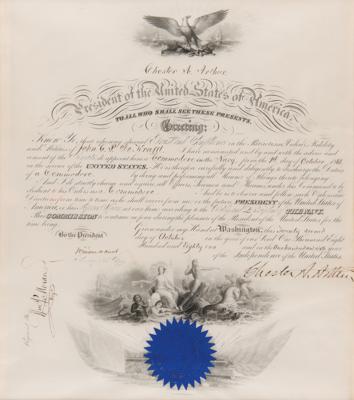 Chester A. Arthur
President of the United States of America,
TO ALL WHO SHALL SEE THESE PRESENTS,
Greeting:
Know Ye, That reposing special Trust and Confidence in the Patriotism, Valor, Fidelity
and Abilities of John C. P. de Krafft I have nominated and by and with the advice and
consent of the Senate do appoint him a Commodore in the Navy, from the 1st day of October 1881
in the service of the UNITED STATES. He is therefore carefully and diligently to discharge the Duties
of a Commodore by doing and performing all Manner of Things thereto belonging.
And I do strictly charge and require all Officers, Seamen and Marines under his Command to be
obedient to his Orders as a Commodore And he is to observe and follow such Orders and
Directions from time to time as he shall receive from me or the future PRESIDENT of the United States of
America, or his Superior Officer set over him, according to the Rules and Discipline of THE NAVY.
This COMMISSION to continue in force during the pleasure of the President of the United States for the
time being.
Given under my Hand at Washington, this twenty second
day of October in the year of our Lord One Thousand Eight
Hundred and Eighty one and in the One Hundred and sixth year
of the Independence of the United States.
By the President
Chester A. Arthur